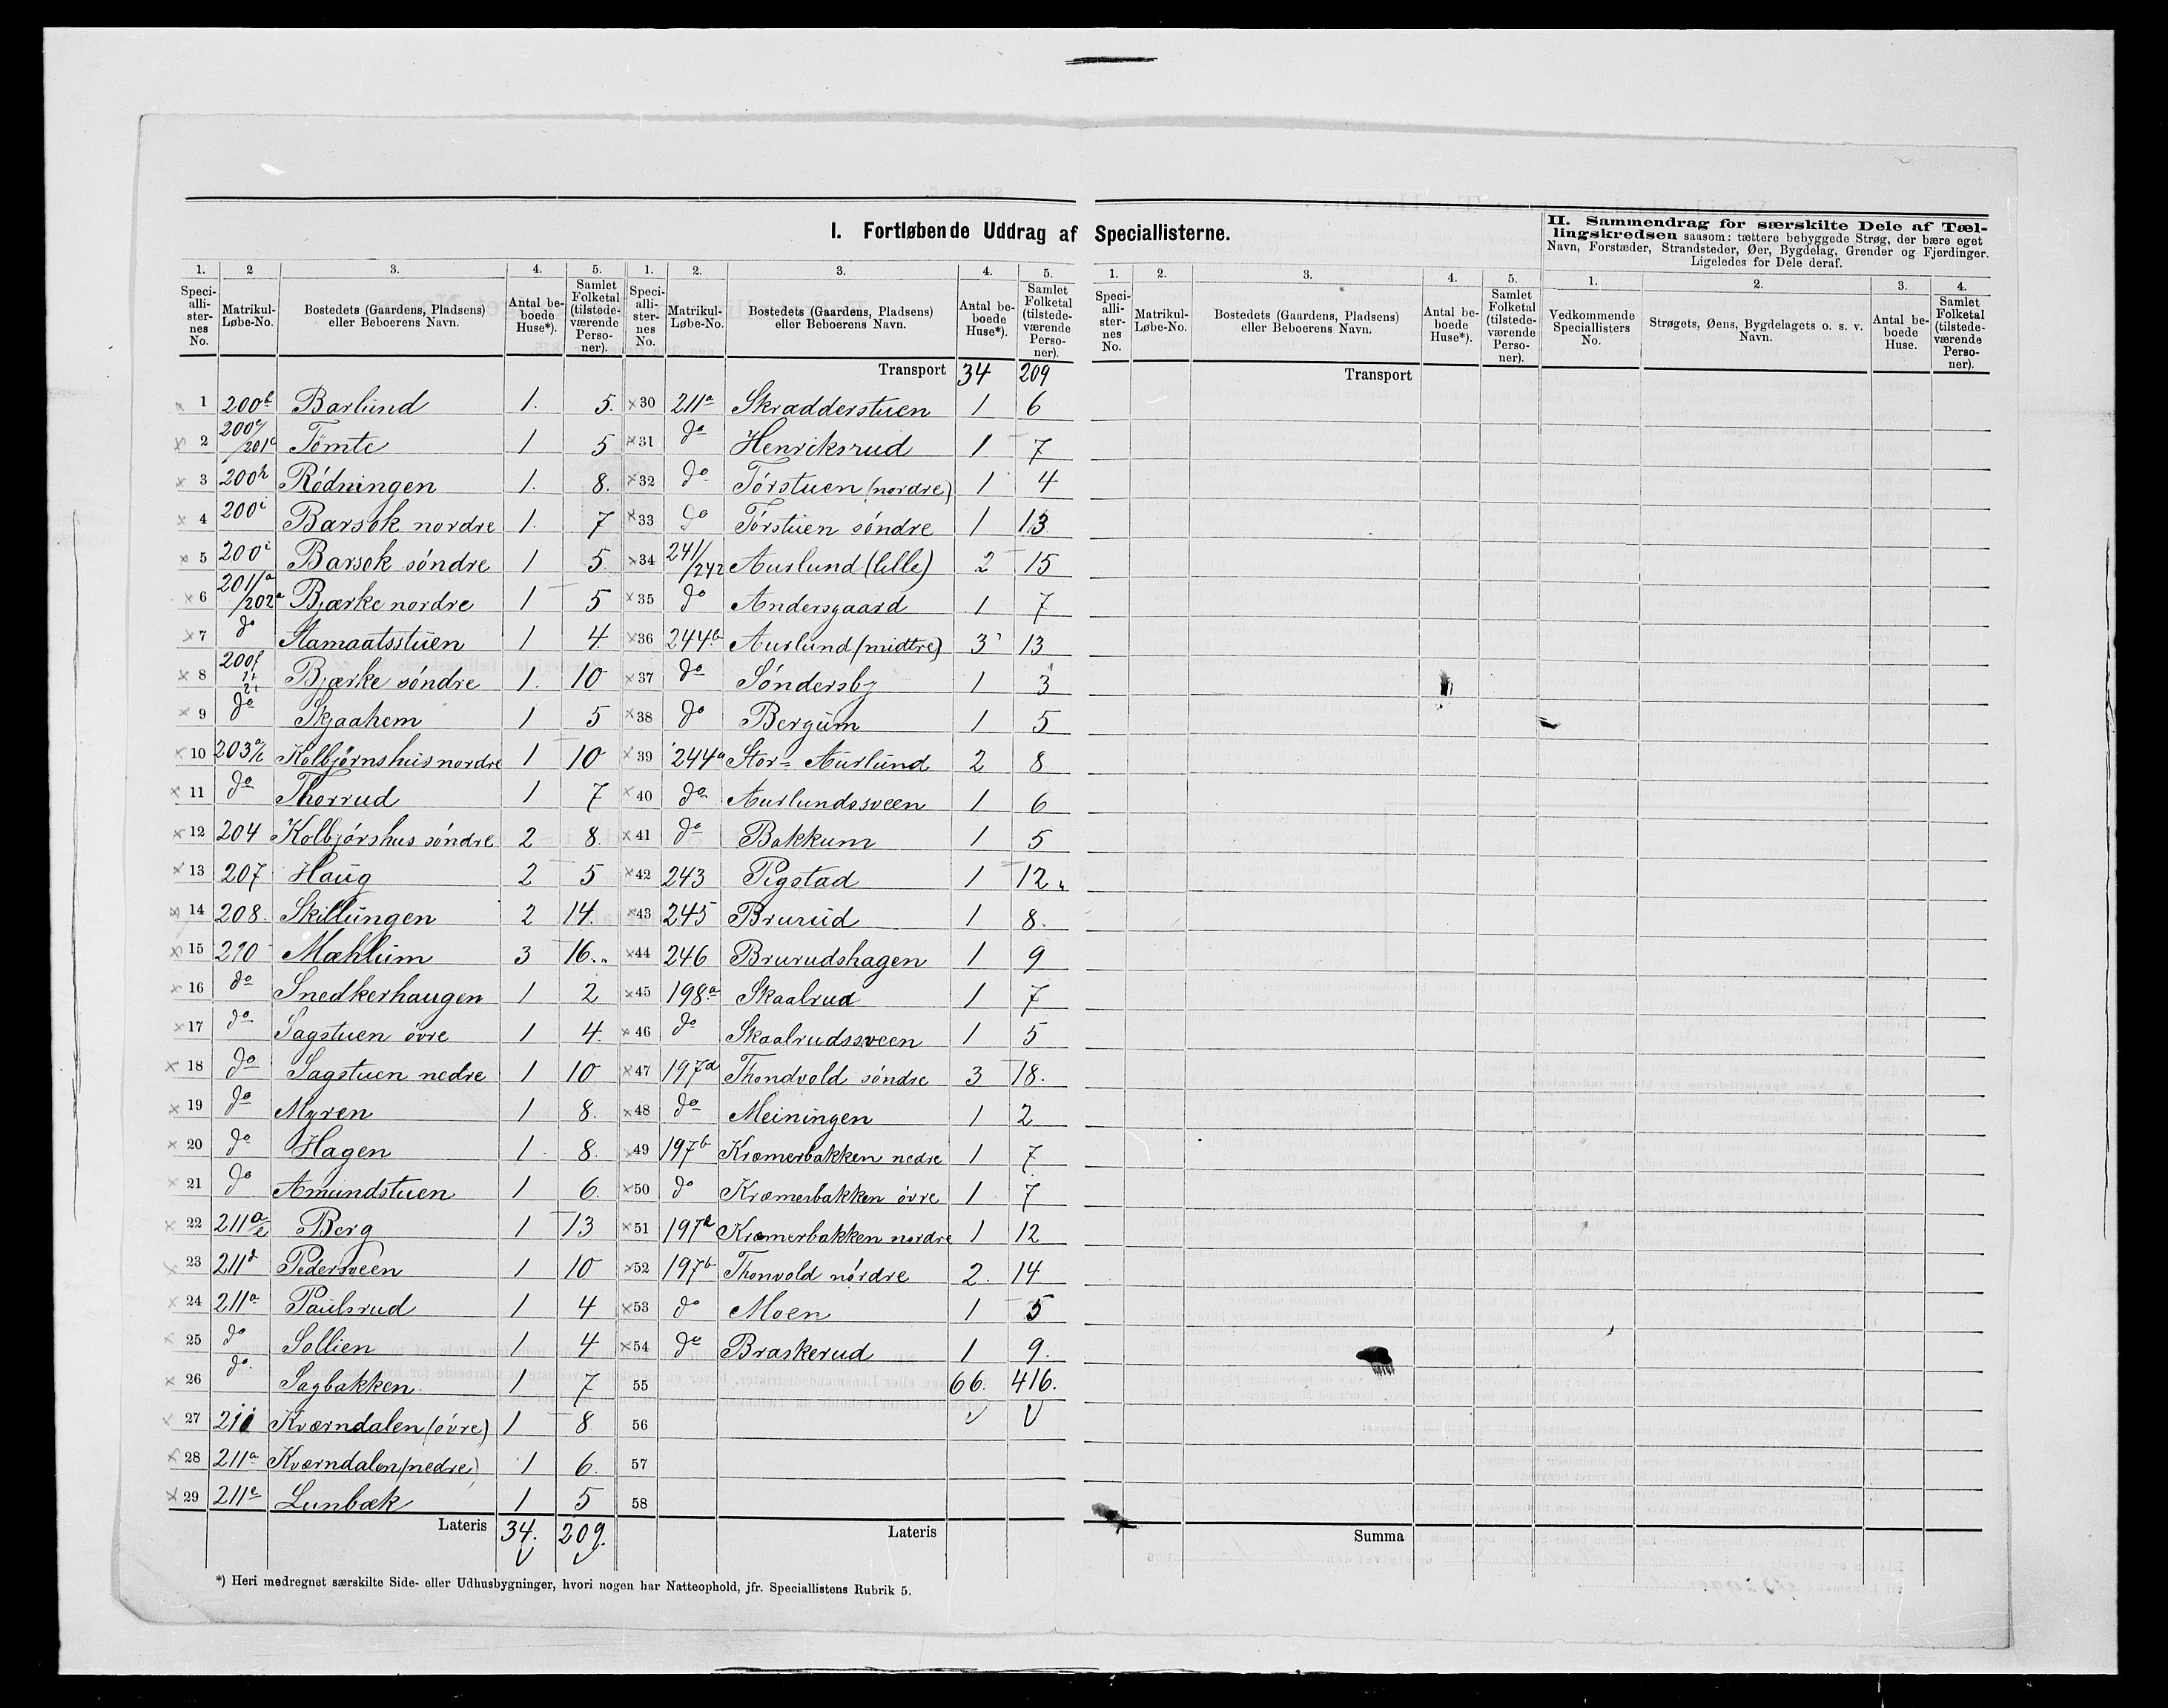 I. Fortløbende Uddrag af Speciallisterne.
II. Sammendrag for særskilte Dele af Tællingskredsen saasom: tættere bebyggede Strøg, der bære eget Navn, Forstæder, Strandsteder, Øer, Bygdelag, Grender og Fjerdinger. Ligeledes for Dele deraf.
1. 2 3. 4. 5. 1. 2. 3. 4. 5. 1. 2. 3. 4. 5. 1. 2. 3. 4.
Speciallisternes No. Matrikul-Løbe-No. Bostedets (Gaardens, Pladsens) eller Beboerens Navn. Antal beboede Huse*). Samlet Folketal (tilstedeværende Personer).
Speciallisternes No. Matrikul-Løbe-No. Bostedets (Gaardens, Pladsens) eller Beboerens Navn. Antal beboede Huse*). Samlet Folketal (tilstedeværende Personer).
Speciallisternes No. Matrikul-Løbe-No. Bostedets (Gaardens, Pladsens) eller Beboerens Navn. Antal beboede Huse*). Samlet Folketal (tilstedeværende Personer).
Vedkommende Speciallisters No. Strøgets, Øens, Bygdelagets o. s. v. Navn. Antal beboede Huse. Samlet Folketal (tilstedeværende Personer).
1 200b Barlund 1. 5.
2 200c/201c Tømte 1 5
3 200h Rödningen 1. 8.
4 200i Barsok nordre 1. 7
5 200i Barsok söndre 1 5.
6 201a/202a Bjærke nordre 1 5
7 do Stamaatsstuen 1 4.
8 200f Bjærke söndre 1. 10
9 do Skjaahem 1 5
10 203 Kolbjörnshus nordre 1 10
11 do Thorrud 1 7
12 204 Kolbjörshus söndre 2 8.
13 207 Haug 2 5
14 208. Skillungen 2 14.
15 210 Mæhlum 3 16.
16 do Snedkerhaugen 1 2
17 do Sagstuen övre 1 4.
18 do Sagstuen nedre 1 10
19 do Myren 1 8.
20 do Hagen 1. 8.
21 do Amundstuen 1 6.
22 211a/e Berg 1 13
23 211d Pedersveen 1 10
24 211a Paulsrud 1 4
25 do Sollien 1 4
26 do. Sagbakken 1 7
27 211 Kværndalen (övre) 1 8.
28 211a Kværndalen (nedre) 1 6.
29 211e Lunbæk 1 5
Lateris 34. 209.
Transport 34 209
30 211a Skrædderstuen 1 6
31 do Henriksrud 1 7
32 do Törstuen (nordre) 1 4
33 do Törstuen söndre 1 13
34 241/242 Aurlund (lille) 2 15
35 do Andersgaard 1 7
36 244b Aurlund (midtre) 3 13
37 do Söndersby 1 3
38 do Bergum 1 5
39 244a Stor= Aurlund 2 8
40 do Aurlundssveen 1 6
41 do Bakkum 1 5
42 243 Pigstad 1 12
43 245 Brurud 1 8.
44 246 Brurudshagen 1 9
45 198a Skaalrud 1 7
46 do Skaalrudssveen 1 5
47 197d Thondvold söndre 3 18.
48 do Meiningen 1 2
49 197b Kræmerbakken nedre 1 7
50 do Kræmerbakken övre 1 7
51 197 Kræmerbakken nordre 1 12
52 197b Thonvold nórdre 2. 14
53 do Moen 1 5
54 do Braskerud 1 9.
55 66. 416.
56
57
58
Lateris
Transport
Summa
*) Heri medregnet særskilte Side- eller Udhusbygninger, hvori nogen har Natteophold, jfr. Speciallistens Rubrik 5.